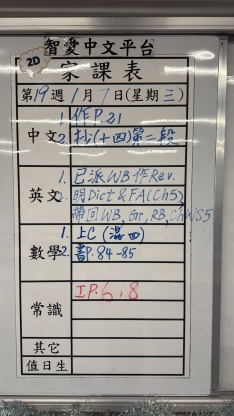 智愛中文平台
2D
家課表
第19週1月7日(星期三)
中文
1. 作P.21
2. 抄(十四)第二段
英文
1. 已派WB作Rev.
2. 明Dict & FA(Ch5)
帶回WB, Gr, RB, Ch WS5
數學
1. 上C (漏四)
2. 書P.84-85
常識
IP.6,8
其它
值日生